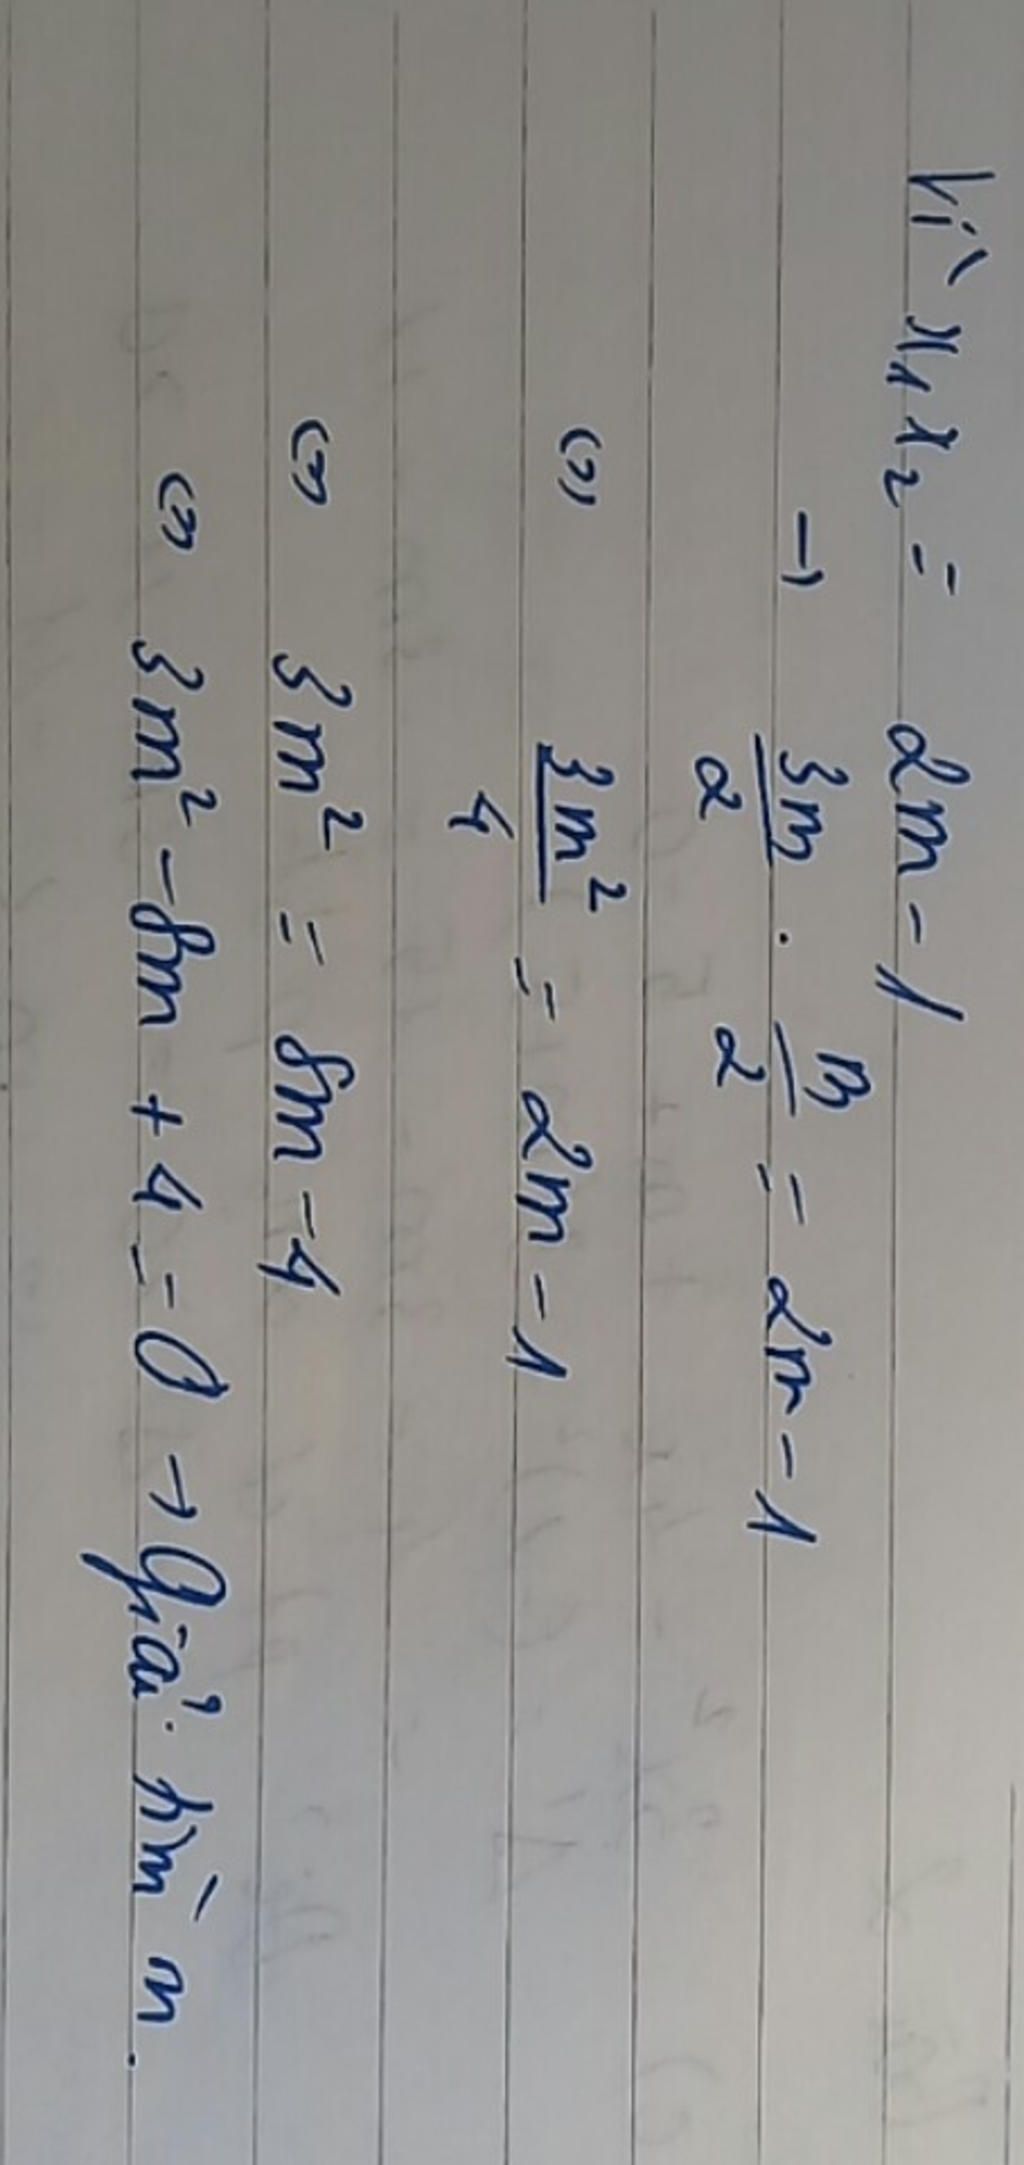 Vì x₁x₂ = 2m - 1
→ 3m/2 . m/2 = 2m - 1
⇔ 3m²/4 = 2m - 1
⇔ 3m² = 8m - 4
⇔ 3m² - 8m + 4 = 0 → Giải tìm m.